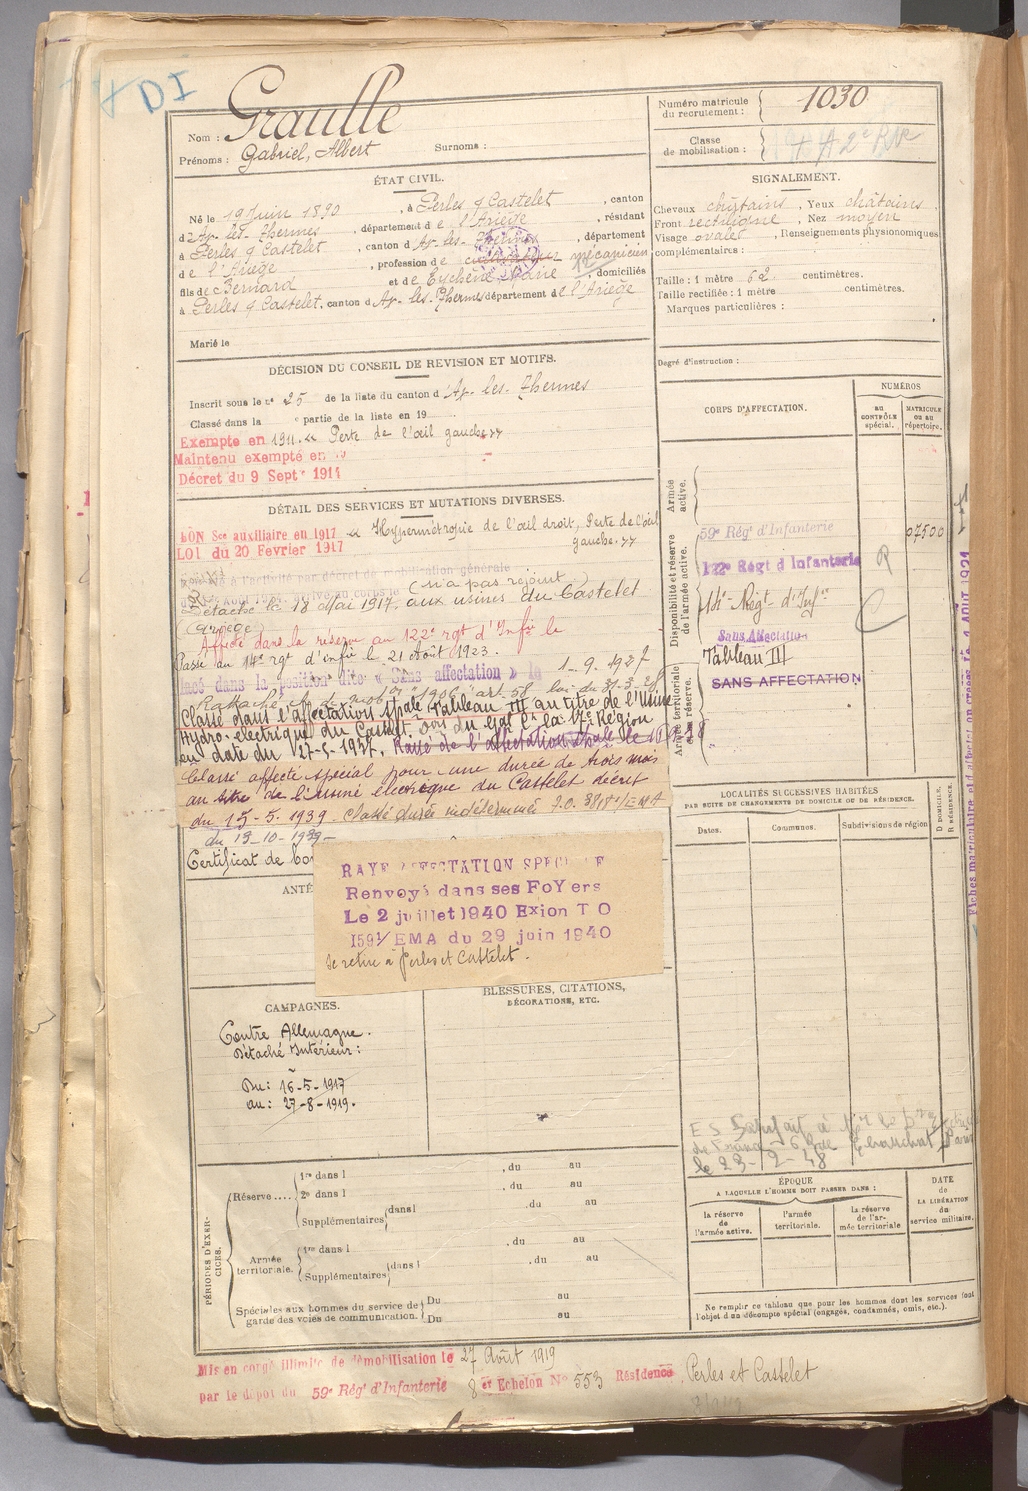 DI
Nom : Graulle
Prénoms : Gabriel, Albert Surnoms :
Numéro matricule du recrutement : 1030
Classe de mobilisation :
ÉTAT CIVIL.
Né le 19 Juin 1890, à Perles & Castelet, canton
d'Ax-les-Thermes, département de l'Ariège, résidant
à Perles & Castelet, canton d'Ax-les-Thermes, département
de l'Ariège, profession de mécanicien
fils de Bernard et de Eychène Marie, domiciliés
à Perles & Castelet, canton d'Ax-les-Thermes département de l'Ariège
Marié le
SIGNALEMENT.
Cheveux châtains, Yeux châtains.
Front rectiligne, Nez moyen
Visage ovale, Renseignements physionomiques
complémentaires :
Taille : 1 mètre 62 centimètres.
Taille rectifiée : 1 mètre centimètres.
Marques particulières :
Degré d'instruction :
DÉCISION DU CONSEIL DE REVISION ET MOTIFS.
Inscrit sous le n° 25 de la liste du canton d'Ax-les-Thermes
Classé dans la partie de la liste en 19
Exempté en 1911. « Perte de l'œil gauche »
Maintenu exempté en
Décret du 9 Septe 1914
DÉTAIL DES SERVICES ET MUTATIONS DIVERSES.
BON Sce auxiliaire en 1917 « Hypermétropie de l'œil droit, Perte de l'œil
LOI du 20 Fevrier 1917 gauche. »
à l'activité par décret de mobilisation générale
(n'a pas rejoint)
Détaché le 18 Mai 1917, aux usines du Castelet
(Ariège)
Affecté dans la réserve au 122e rgt d'Infie le
Passé au 14e rgt d'infie le 21 Août 1923.
lacé dans la position dite « Sans affectation » le 1-9-1927
Classé dans l'affectation spale Tableau III au titre de l'Usine
Hydro-électrique du Castelet. la 17e Région
en date du 27-5-1937. Rayé de l'affectation spale le
Classé affecté spécial pour une durée de trois mois
au titre de l'usine électrique du Castelet décret
du 15-5-1939. Classé durée indéterminée 3818/EMA
du 13-10-1939
Certificat de bo
ANTÉ
RAYE AFFECTATION SPECIALE
Renvoyé dans ses FoYers
Le 2 juillet 1940 Exion T O
1591/ EMA du 29 juin 1940
Se retire à Perles et Castelet.
CORPS D'AFFECTATION.
NUMÉROS
au CONTRÔLE spécial.
MATRICULE ou au répertoire.
Armée active.
Disponibilité et réserve de l'armée active.
59e Régt d'Infanterie 07500
122e Régt d Infanterie R
14e Régt d'Infie
Sans Affectation
Tableau III
Armée territoriale et sa réserve.
SANS AFFECTATION
LOCALITÉS SUCCESSIVES HABITÉES
PAR SUITE DE CHANGEMENTS DE DOMICILE OU DE RÉSIDENCE.
Dates. Communes. Subdivisions de région
D DOMICILE.
R RÉSIDENCE.
CAMPAGNES.
Contre Allemagne.
Détaché Intérieur :
Du : 16-5-1917
au : 27-8-1919.
BLESSURES, CITATIONS,
DÉCORATIONS, ETC.
le 23-2-48
PÉRIODES D'EXERCICES.
Réserve .... 1re dans l , du au
2e dans l , du au
Supplémentaires dans l , du au
Armée territoriale. 1re dans l , du au
Supplémentaires dans l , du au
Spéciales aux hommes du service de garde des voies de communication. Du au
Du au
ÉPOQUE
A LAQUELLE L'HOMME DOIT PASSER DANS :
la réserve de l'armée active.
l'armée territoriale.
la réserve de l'armée territoriale
DATE DE LA LIBÉRATION du service militaire.
Ne remplir ce tableau que pour les hommes dont les services font
l'objet d'un décompte spécial (engagés, condamnés, omis, etc.).
Mis en congé illimité de démobilisation le 27 Août 1919
par le dépot du 59e Régt d'Infanterie 8 er Echelon No 553 Résidence Perles et Castelet